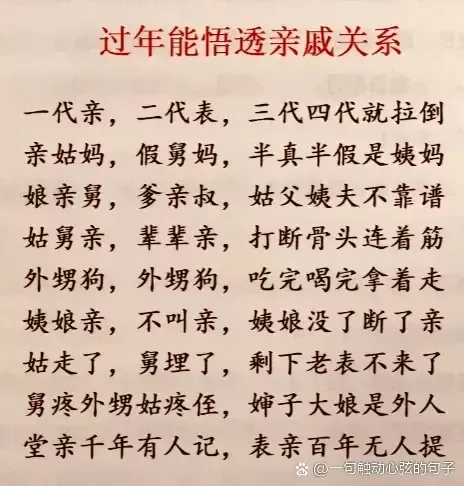 过年能悟透亲戚关系
一代亲，二代表，三代四代就拉倒
亲姑妈，假舅妈，半真半假是姨妈
娘亲舅，爹亲叔，姑父姨夫不靠谱
姑舅亲，辈辈亲，打断骨头连着筋
外甥狗，外甥狗，吃完喝完拿着走
姨娘亲，不叫亲，姨娘没了断了亲
姑走了，舅埋了，剩下老表不来了
舅疼外甥姑疼侄，婶子大娘是外人
堂亲千年有人记，表亲百年无人提
@一句触动心弦的句子